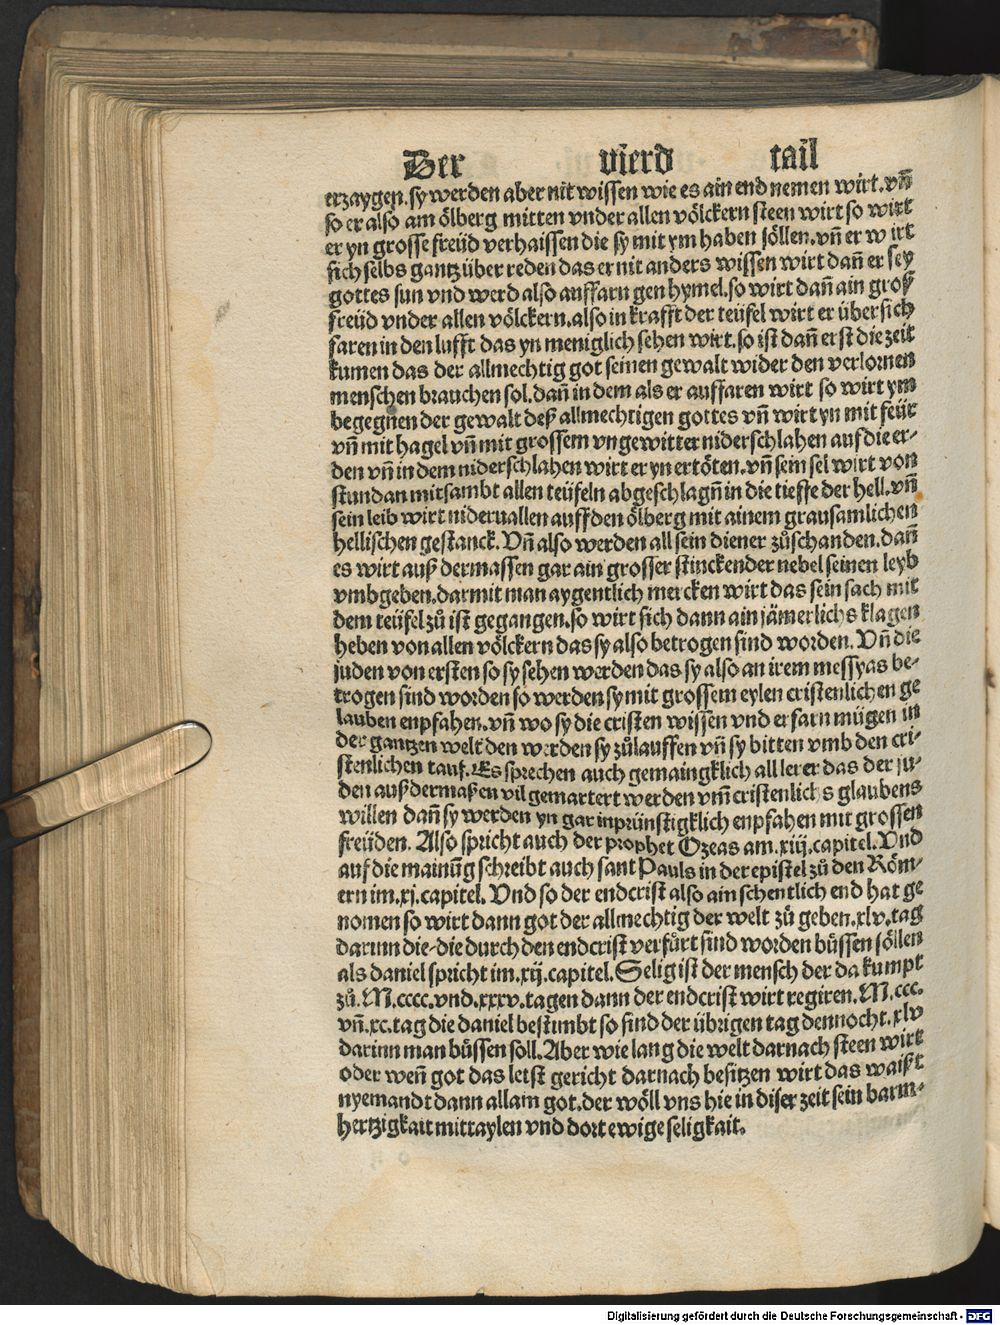 Der vierd tail
erzaygen. sy werden aber nit wissen wie es ain end nemen wirt. vn̄
so er also am ölberg mitten vnder allen völckern steen wirt so wirt
er yn grosse freüd verhaissen die sy mit ym haben söllen. vn̄ er wirt
sich selbs gantz über reden das er nit anders wissen wirt dan̄ er sey
gottes sun vnd werd also auffarn gen hymel. so wirt dan̄ ain groß
freüd vnder allen völckern. also in krafft der teüfel wirt er über sich
faren in den lufft das yn meniglich sehen wirt. so ist dan̄ erst die zeit
kumen das der allmechtig got seinen gewalt wider den verlornen
menschen brauchen sol. dan̄ in dem als er auffaren wirt so wirt ym
begegnen der gewalt deß allmechtigen gottes vn̄ wirt yn mit feür
vn̄ mit hagel vn̄ mit grossem vngewitter niderschlahen auf die er-
den vn̄ in dem niderschlahen wirt er yn ertöten. vn̄ sein sel wirt von
stundan mitsambt allen teüfeln abgeschlagn̄ in die tieffe der hell. vn̄
sein leib wirt nideruallen auff den ölberg mit ainem grausamlichen
hellischen gestanck. Vn̄ also werden all sein diener zůschanden. dan̄
es wirt auß dermassen gar ain grosser stinckender nebel seinen leyb
vmbgeben. darmit man aygentlich mercken wirt das sein sach mit
dem teüfel zů ist gegangen. so wirt sich dann ain jämerlichs klagen
heben von allen völckern das sy also betrogen sind worden. Vn̄ die
juden von ersten so sy sehen werden das sy also an irem messyas be-
trogen sind worden so werden sy mit grossem eylen cristenlichen ge
lauben enpfahen. vn̄ wo sy die cristen wissen vnd erfarn mügen in
der gantzen welt den werden sy zůlauffen vn̄ sy bitten vmb den cri-
stenlichen tauf. Es sprechen auch gemaingklich all lerer das der ju-
den auß dermaßen vil gemartert werden vm̄ cristenlichs glaubens
willen dan̄ sy werden yn gar inprünstigklich enpfahen mit grossen
freüden. Also spricht auch der prophet Ozeas am. xiij. capitel. Vnd
auf die mainūg schreibt auch sant Pauls in der epistel zů den Röm-
ern im. xj. capitel. Vnd so der endcrist also ain schentlich end hat ge
nomen so wirt dann got der allmechtig der welt zů geben. xlv. tag
darinn die-die durch den endcrist verfůrt sind worden bůssen söllen
als daniel spricht im. xij. capitel. Selig ist der mensch der da kumpt
zů. M. cccc. vnd. xxxv. tagen dann der endcrist wirt regiren. M. ccc.
vn̄. xc. tag die daniel bestimbt so sind der übrigen tag dennocht. xlv
darinn man bůssen soll. Aber wie lang die welt darnach steen wirt
oder wen̄ got das letst gericht darnach besitzen wirt das waißt
nyemandt dann allain got. der wöll vns hie in diser zeit sein barm-
hertzigkait mittaylen vnd dort ewige seligkait.
Digitalisierung gefördert durch die Deutsche Forschungsgemeinschaft - DFG